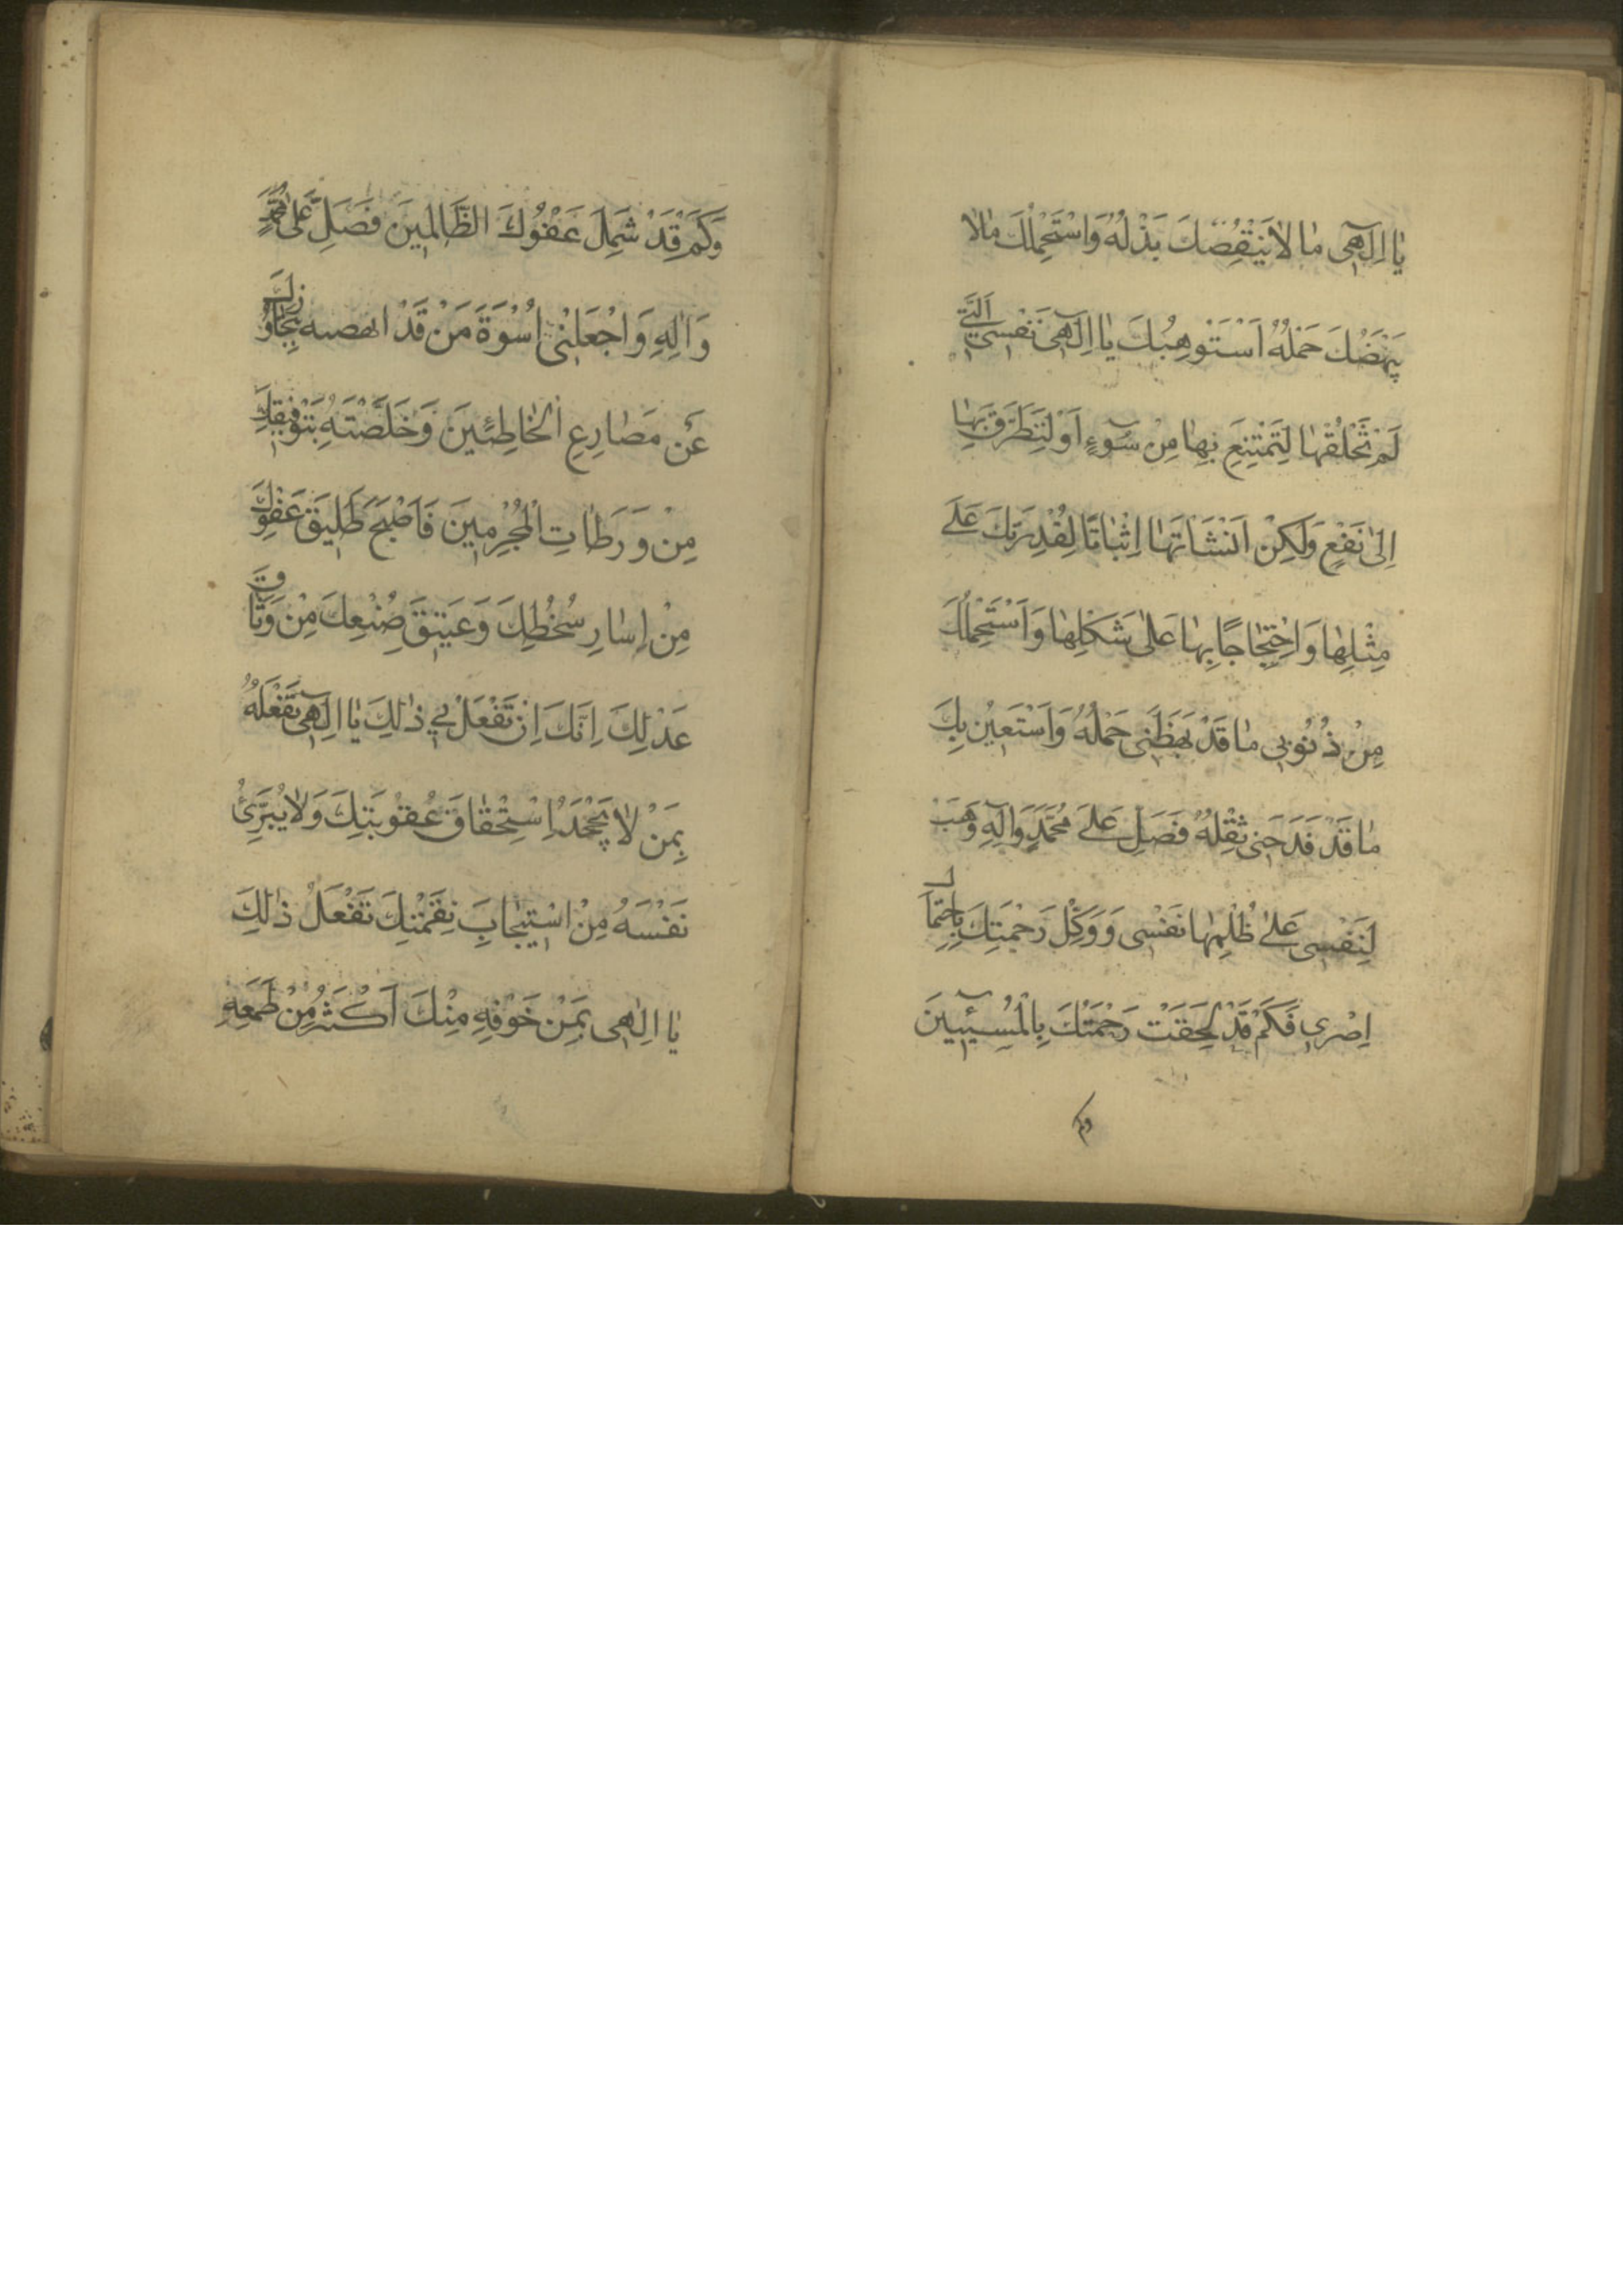 يٰا اِلٰهى مٰا لاٰ يَنْقُصُكَ بَذْلُهُ وَاَسْتَحْمِلُكَ مٰالاٰ
يَبْهَضُكَ حَمْلُهُ اَسْتَوْهِبُكَ يٰا اِلٰهى نَفْسِىَ الَّتى
لَمْ تَخْلُقْهٰا لِتَمْتَنِعَ بِهٰا مِنْ سُوۤءٍ اَوْ لِتَطَرَّقَ بِهٰا
اِلىٰ نَفْعٍ وَلٰكِنْ اَنْشَاْتَهٰا اِثْبٰاتًا لِقُدْرَتِكَ عَلىٰ
مِثْلِهٰا وَاحْتِجٰاجًا بِهٰا عَلىٰ شَكْلِهٰا وَاَسْتَحْمِلُكَ
مِنْ ذُنُوبى مٰا قَدْ بَهَظَنى حَمْلُهُ وَاَسْتَعينُ بِكَ
مٰا قَدْ فَدَحَنى ثِقْلُهُ فَصَلِّ عَلىٰ مُحَمَّدٍ وَاٰلِهِ وَهَبْ
لِنَفْسى عَلىٰ ظُلْمِهٰا نَفْسى وَوَكِّلْ رَحْمَتَكَ بِاحْتِمٰالِ
اِصْرى فَكَمْ قَدْ لَحِقَتْ رَحْمَتُكَ بِالْمُسيۤئينَ
وكم
وَكَمْ قَدْ شَمِلَ عَفْوُكَ الظّٰالِمينَ فَصَلِّ عَلىٰ مُحَمَّدٍ
وَاٰلِهِ وَاجْعَلْنى اُسْوَةَ مَنْ قَدْ انهضته بِتَجٰاوُزِكَ
عَنْ مَصٰارِعِ الْخٰاطِئينَ وَخَلَّصْتَهُ بِتَوْفيقِكَ
مِنْ وَرَطٰاتِ الْمُجْرِمينَ فَاَصْبَحَ طَليقَ عَفْوِكَ
مِنْ اِسٰارِ سُخْطِكَ وَعَتيقَ صُنْعِكَ مِنْ وَثٰاقِ
عَدْلِكَ اِنَّكَ اِنْ تَفْعَلْ بى ذٰلِكَ يٰا اِلٰهى تَفْعَلْهُ
بِمَنْ لاٰ يَجْحَدُ اسْتِحْقٰاقَ عُقُوبَتِكَ وَلاٰ يُبَرِّئُ
نَفْسَهُ مِنْ اسْتيجٰابِ نِقْمَتِكَ تَفْعَلُ ذٰلِكَ
يٰا اِلٰهى بِمَنْ خَوْفُهُ مِنْكَ اَكْثَرُ مِنْ طَمَعِهِ